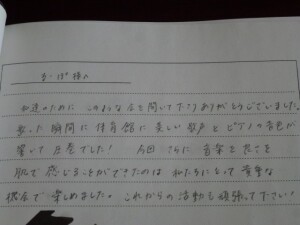 私達のために このような会を開いて下さりありがとうございました。
歌った瞬間に体育館に美しい歌声とピアノの音色が
響いて圧巻でした! 今回 さらに 音楽の良さを
肌で感じることができたのは 私たちにとって貴重な
機会で 楽しめました。これからの活動も頑張って下さい!